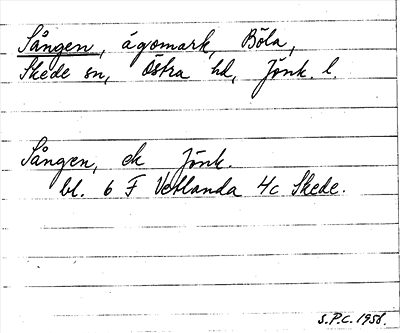 Sången, ägomark, Böla,
Skede sn, Östra hd, Jönk. l.
Sången, ek Jönk.
bl. 6 F Vetlanda 4c Skede.
S.P.C. 1958.